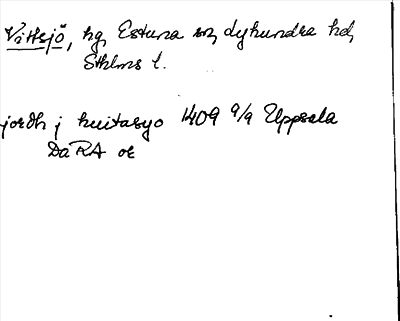 Vittsjö, hg, Estuna sn, Lyhundra hd,
Sthlms l.
jordh j huitasyo 1409 9/9 Uppsala
DaRA or